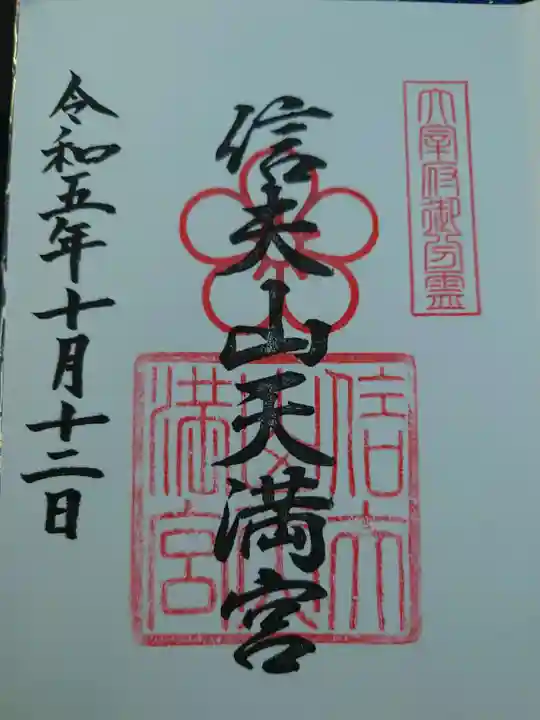 太宰府御分霊
信夫山天満宮
信夫山天満宮
令和五年十月十二日